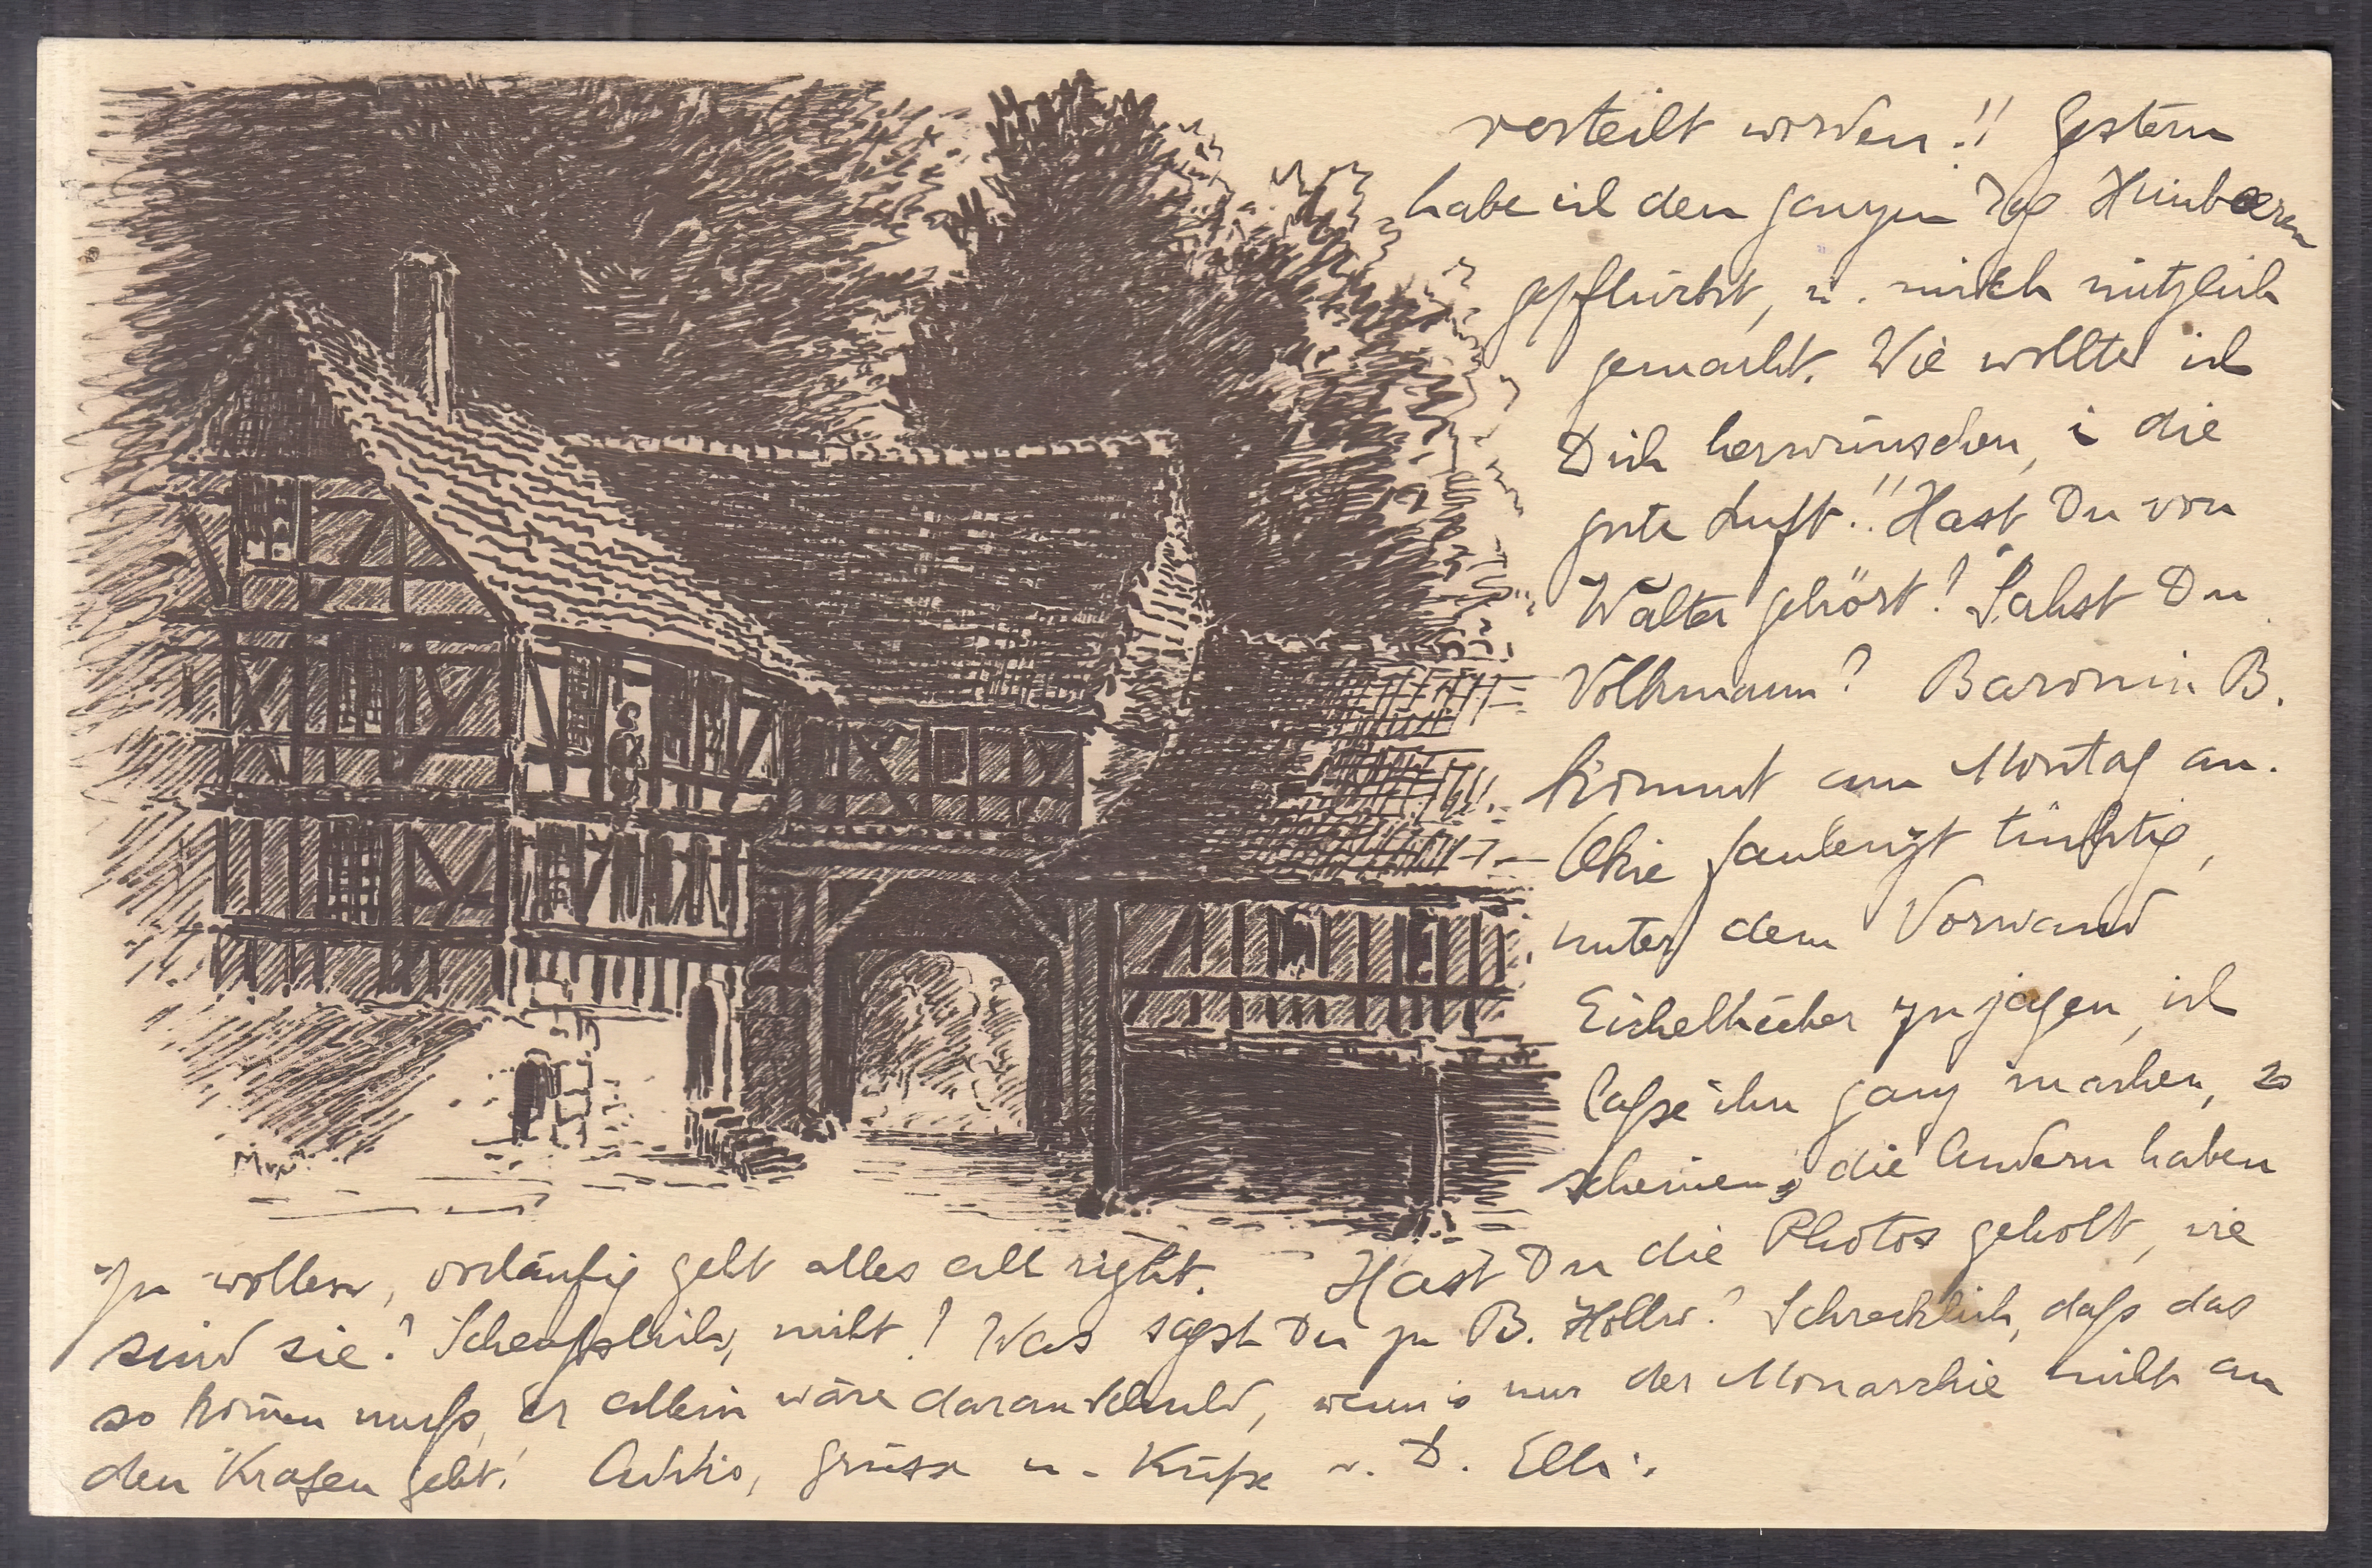 verteilt worden!! Gestern
habe ich den ganzen Tag Himbeeren
gepflückt, u. mich nützlich
gemacht. Wie wollte ich
Dich herwünschen, i die
gute Luft!! Hast Du von
Walter gehört? Sahst Du
Volkmann? Baronin B.
kommt am Montag an.
faulenzt tüchtig,
unter dem Vorwand
Eichelhäher zu jagen, ich
laße ihn ganz machen, es
scheinen, die Andern haben
zu wollen, vorläufig geht alles all right. Hast Du die Photos geholt, wie
sind sie? Scheußlich, nicht! Was sagst Du zu B. Hollw.? Schrecklich, daß das
so kom̄en muß, Er allein wäre daran schuld, wenn's nur der Monarchie nicht an
den Kragen geht! Addio, Grüsse u. Küße v. D. Elli.